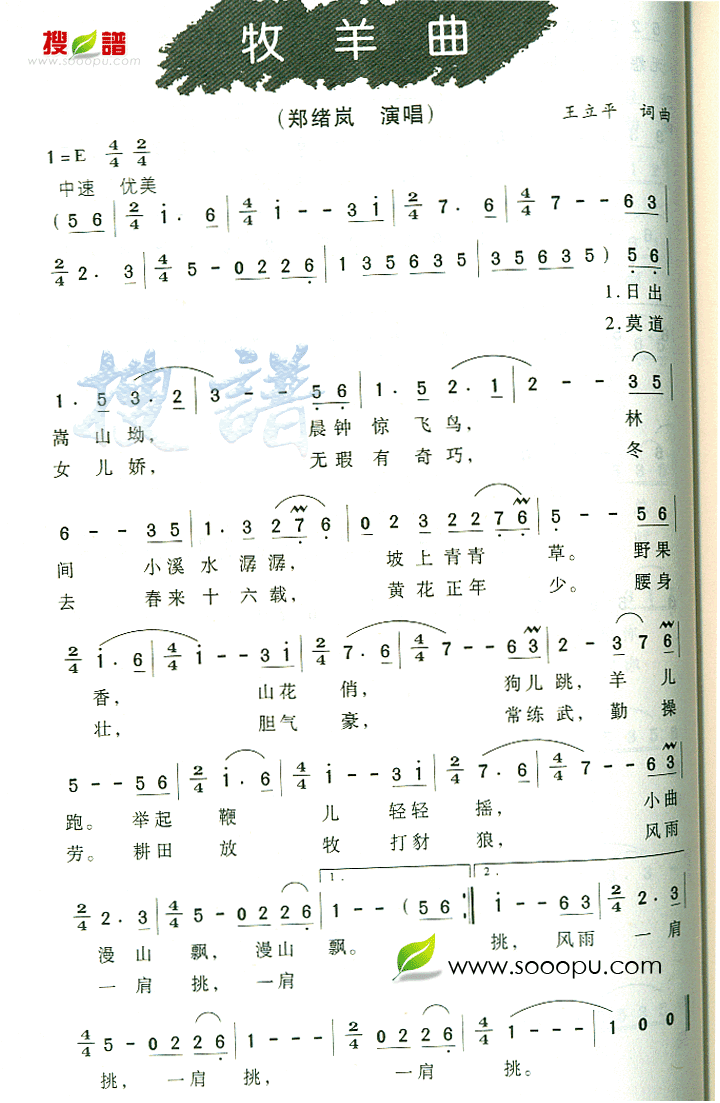 搜譜
www.sooopu.com
牧羊曲
(郑绪岚 演唱)
王立平 词曲
1=E 4/4 2/4
中速 优美
(5 6 | 2/4 i · 6 | 4/4 i - - 3 i | 2/4 7 · 6 | 4/4 7 - - 6 3 |
2/4 2 · 3 | 4/4 5 - 0 2 2 6 | 1 3 5 6 3 5 | 3 5 6 3 5) 5 6 |
1.日出
2.莫道
1 · 5 3 · 2 | 3 - - 5 6 | 1 · 5 2 · 1 | 2 - - 3 5 |
嵩山坳, 晨钟惊飞鸟, 林
女儿娇, 无瑕有奇巧, 冬
6 - - 3 5 | 1 · 3 2 7 6 | 0 2 3 2 2 7 6 | 5 - - 5 6 |
间 小溪水潺潺, 坡上青青草。 野果
去 春来十六载, 黄花正年少。 腰身
2/4 i · 6 | 4/4 i - - 3 i | 2/4 7 · 6 | 4/4 7 - - 6 3 | 2 - 3 7 6 |
香, 山花俏, 狗儿跳, 羊儿
壮, 胆气豪, 常练武, 勤操
5 - - 5 6 | 2/4 i · 6 | 4/4 i - - 3 i | 2/4 7 · 6 | 4/4 7 - - 6 3 |
跑。 举起鞭儿轻轻摇, 小曲
劳。 耕田放牧打豺狼, 风雨
1. 2.
2/4 2 · 3 | 4/4 5 - 0 2 2 6 | 1 - - (5 6 :| i - - 6 3 | 2/4 2 · 3 |
漫山飘, 漫山飘。 挑, 风雨一肩
一肩挑, 一肩
www.sooopu.com
4/4 5 - 0 2 2 6 | 1 - - - | 2/4 0 2 2 6 | 4/4 1 - - - | 1 0 0 ‖
挑, 一肩挑, 一肩挑。